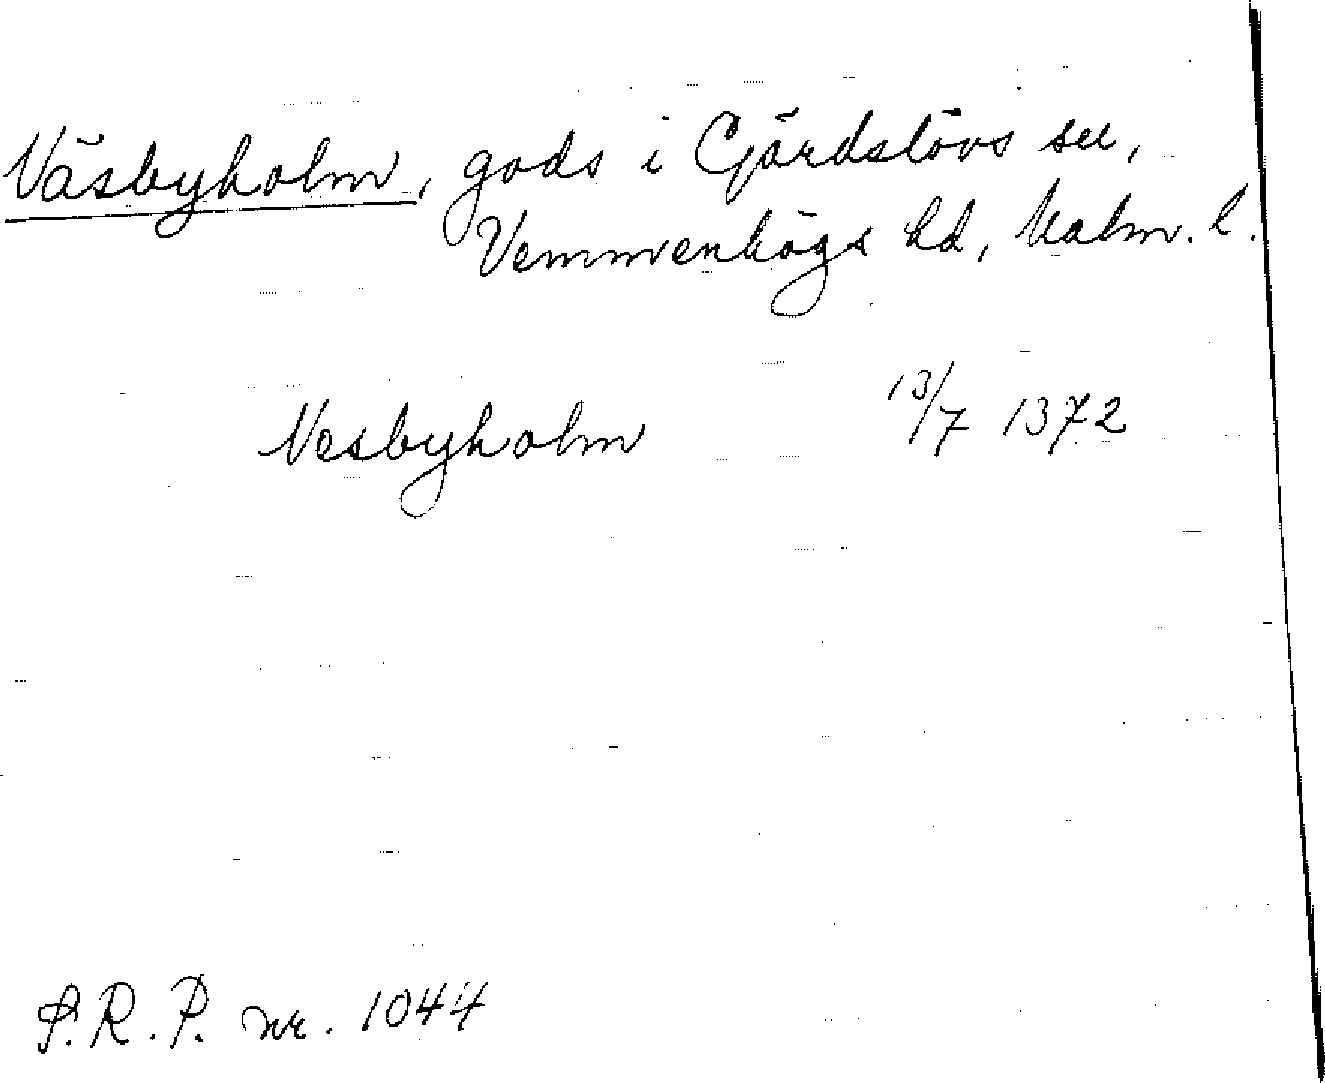 Väsbyholm, gods i Gärdslövs sn,
Vemmenhögs hd, Malm. l.
Vesbyholm 13/7 1372
S.R.P. nr. 1044